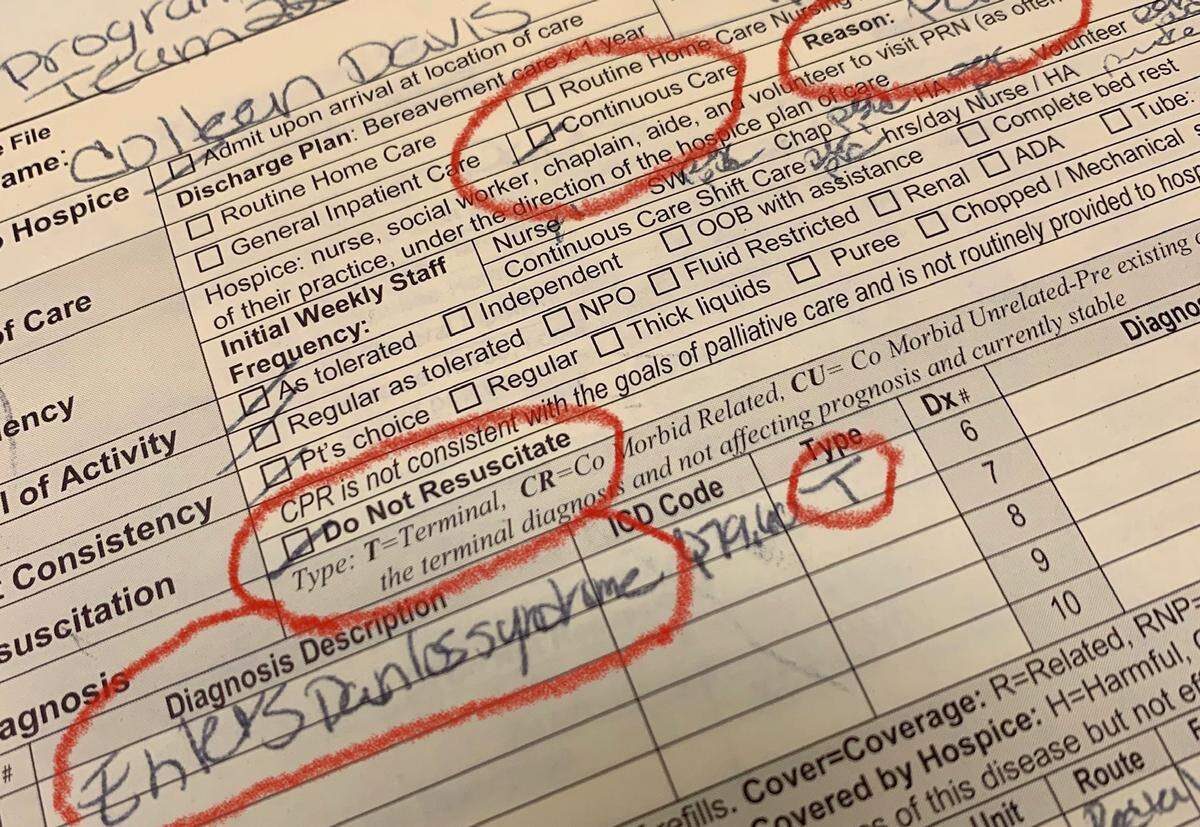 Program
Team
e File
ame: Colleen Davis
o Hospice
Admit upon arrival at location of care
Discharge Plan: Bereavement care x 1 year
of Care
Routine Home Care
Routine Home Care Nursing
Reason:
General Inpatient Care
Continuous Care
Hospice: nurse, social worker, chaplain, aide, and volunteer to visit PRN (as often
of their practice, under the direction of the hospice plan of care
ency
Initial Weekly Staff
Frequency:
Nurse SW Chap HA Volunteer
Continuous Care Shift Care hrs/day Nurse / HA
l of Activity
As tolerated
Independent
OOB with assistance
Complete bed rest
Consistency
Regular as tolerated
NPO
Fluid Restricted
Renal
ADA
Tube:
Pt's choice
Regular
Thick liquids
Puree
Chopped / Mechanical
suscitation
CPR is not consistent with the goals of palliative care and is not routinely provided to hosp
Do Not Resuscitate
agnosis
Type: T=Terminal, CR=Co Morbid Related, CU= Co Morbid Unrelated-Pre existing
the terminal diagnosis and not affecting prognosis and currently stable
#
Diagnosis Description
ICD Code
Type
Dx#
Diagno
Ehlers Danlos syndrome Q79.60 T
6
7
8
9
10
refills. Cover=Coverage: R=Related, RNP=
overed by Hospice: H=Harmful,
s of this disease but not eff
Unit
Route